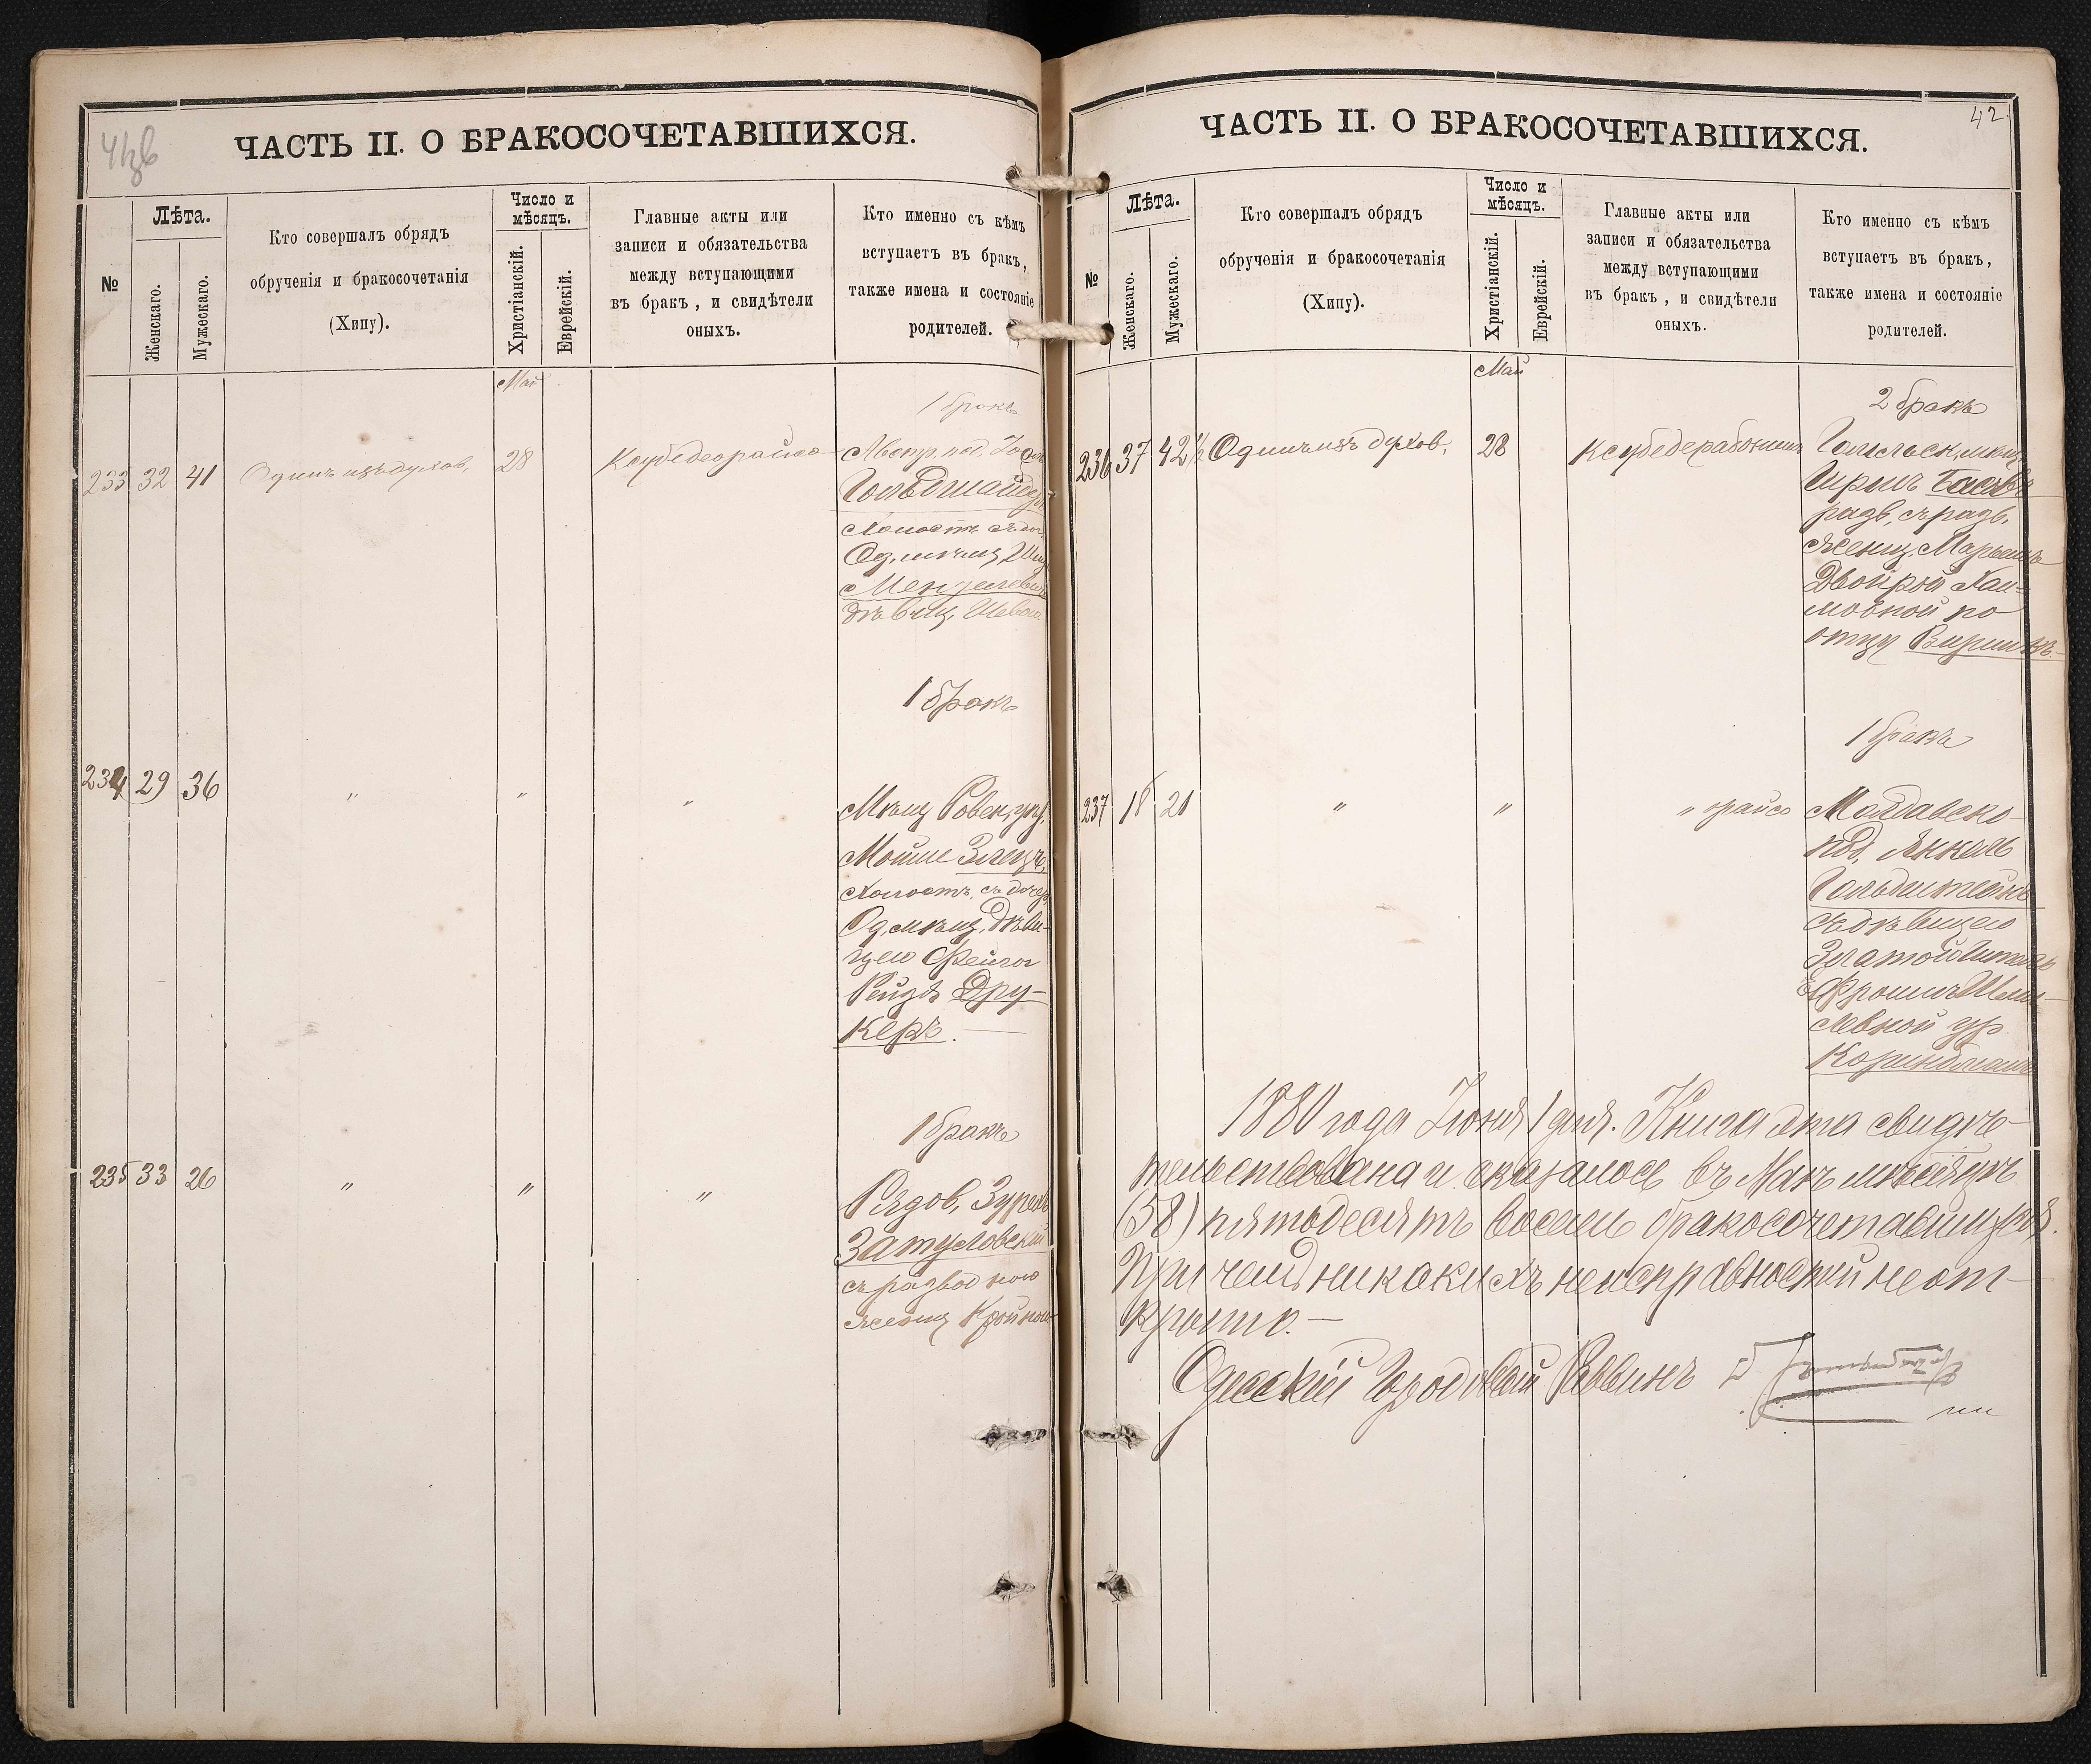 ЧАСТЬ II. О БРАКОСОЧЕТАВШИХСЯ.
№
Лѣта.
Женскаго.
Мужескаго.
Кто совершалъ обрядъ
обрученія и бракосочетанія
(Хипу).
Число и
мѣсяцъ.
Христіанскій.
Еврейскій.
Главные акты или
записи и обязательства
между вступающими
въ бракъ, и свидѣтели
оныхъ.
Кто именно съ кѣмъ
вступаетъ въ бракъ,
также имена и состояніе
родителей.
Май
1 бракъ
233 32 41 Одинъ изъ духов. 28 Ксубедеорайсо Австр. под.
Гольдшайдеръ
Холостъ съ доч.
Од. мѣщ.
дѣвиц.
1 бракъ
234 29 36 " " " Мѣщ. Ровен. губ.
Мойше
Холостъ, съ дочер.
Од. мѣщ. дѣви-
цею Фейга
Рейзя Дру-
керъ.
1 бракъ
235 33 26 " " " Рядов.
Затуловскій
съ разводною
женщ.
42
ЧАСТЬ II. О БРАКОСОЧЕТАВШИХСЯ.
№
Лѣта.
Женскаго.
Мужескаго.
Кто совершалъ обрядъ
обрученія и бракосочетанія
(Хипу).
Число и
мѣсяцъ.
Христіанскій.
Еврейскій.
Главные акты или
записи и обязательства
между вступающими
въ бракъ, и свидѣтели
оныхъ.
Кто именно съ кѣмъ
вступаетъ въ бракъ,
также имена и состояніе
родителей.
Май
2 бракъ
236 37 42½ Одинъ изъ духов. 28
разв. съ разв.
женщ. Марьемъ
Двойрой Хаи-
мовной по
отцу
1 бракъ
237 18 21 " " " орайсо Молдавско-
под. Янкель
Гольдштейнъ
съ дѣвицею
Златой
Ефроимъ
левной ур.
1880 года Іюня 1 дня. Книга эта свидѣ-
тельствована и оказалось въ Маѣ мѣсяцѣ
(58) пятьдесятъ восемь бракосочетавшихся.
Причемъ никакихъ неисправностей не от-
крыто. —
Одесскій Городовой Раввинъ